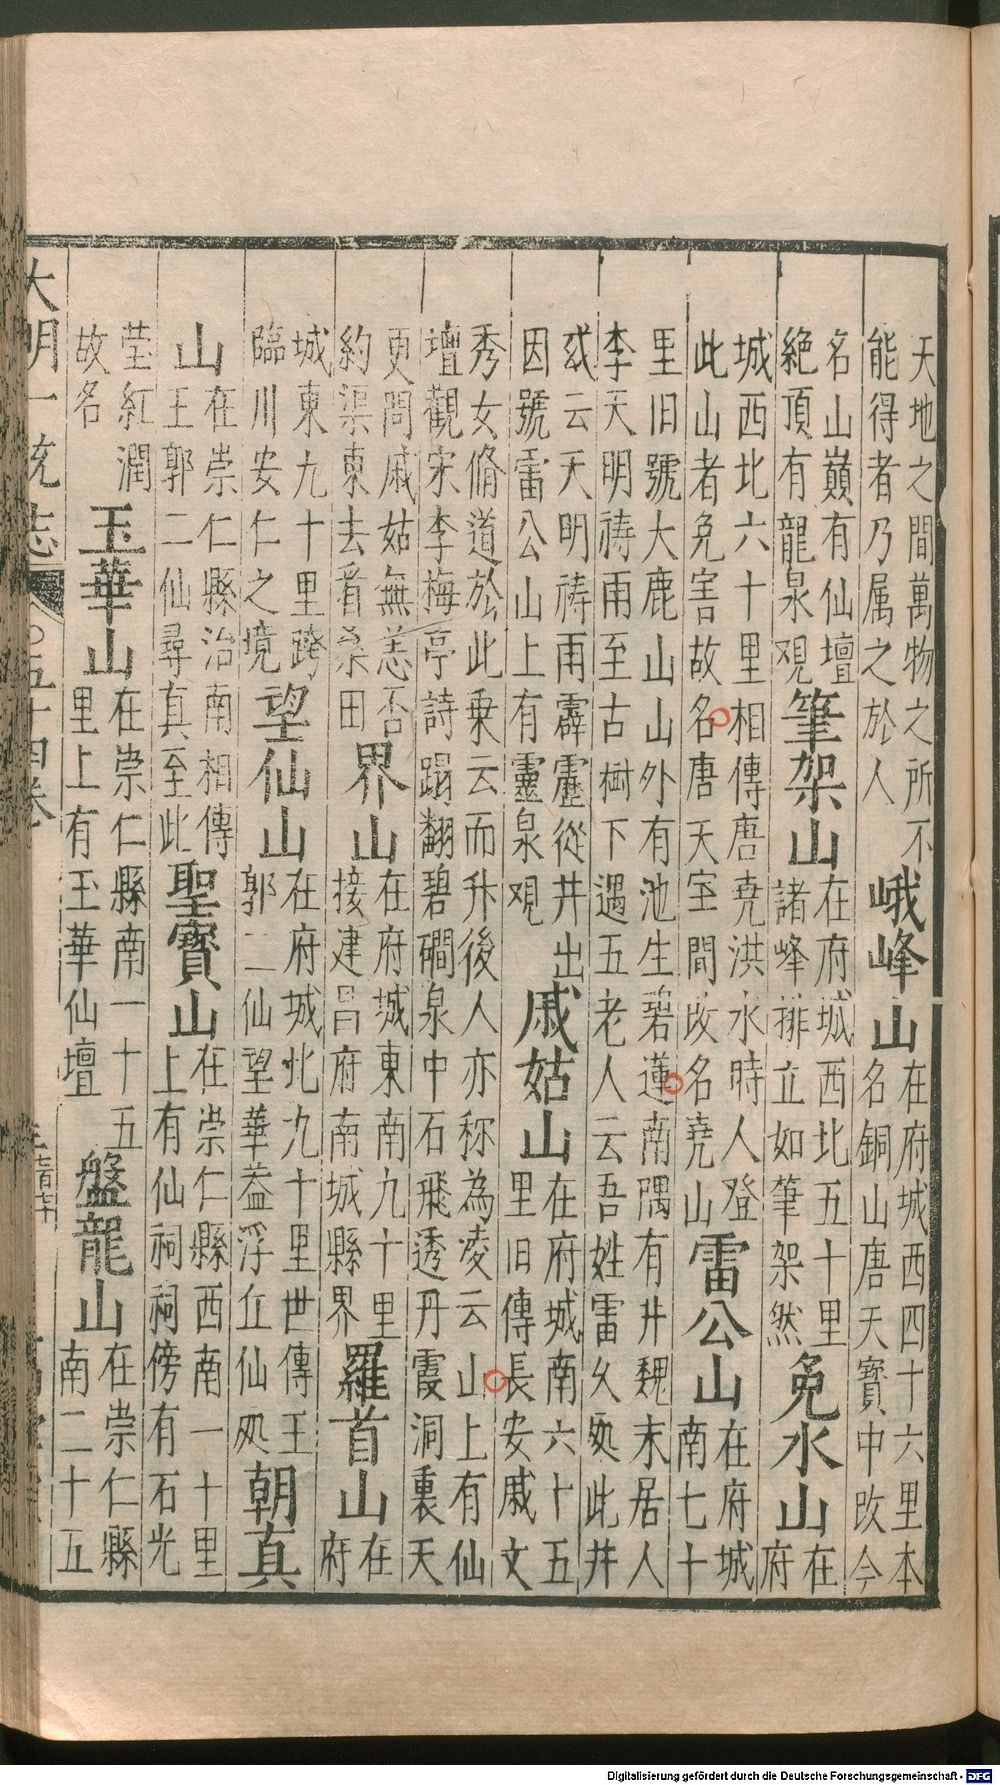 天地之間萬物之所不
能得者乃属之於人
峨峰山
在府城西四十六里本
名銅山唐天寳中改今
名山巔有仙壇
絶頂有龍泉观
筆架山
在府城西北五十里
諸峰排立如筆架然
免水山
在
府
城西北六十里相傳唐尭洪水時人登
此山者免害故名唐天宝間改名尭山
雷公山
在府城
南七十
里旧號大鹿山山外有池生碧蓮南隅有井魏末居人
李天明祷雨至古樹下遇五老人云吾姓雷久处此井
或云天明祷雨霹靂從井出
因號雷公山上有靈泉观
戚姑山
在府城南六十五
里旧傳長安戚文
秀女脩道於此乗云而升後人亦称為凌云山上有仙
壇觀宋李梅亭詩蹋翻碧磵泉中石飛透丹霞洞裏天
更問戚姑無恙否
約渠東去看桑田
界山
在府城東南九十里
接建昌府南城縣界
羅首山
在
府
城東九十里跨
臨川安仁之境
望仙山
在府城北九十里世傳王
郭二仙望華盖浮丘仙处
朝真
山
在崇仁縣治南相傳
王郭二仙尋真至此
聖寳山
在崇仁縣西南一十里
上有仙祠祠傍有石光
莹紅潤
故名
玉華山
在崇仁縣南一十五
里上有玉華仙壇
盤龍山
在崇仁縣
南二十五
大明一統志
五十四卷
Digitalisierung gefördert durch die Deutsche Forschungsgemeinschaft - DFG